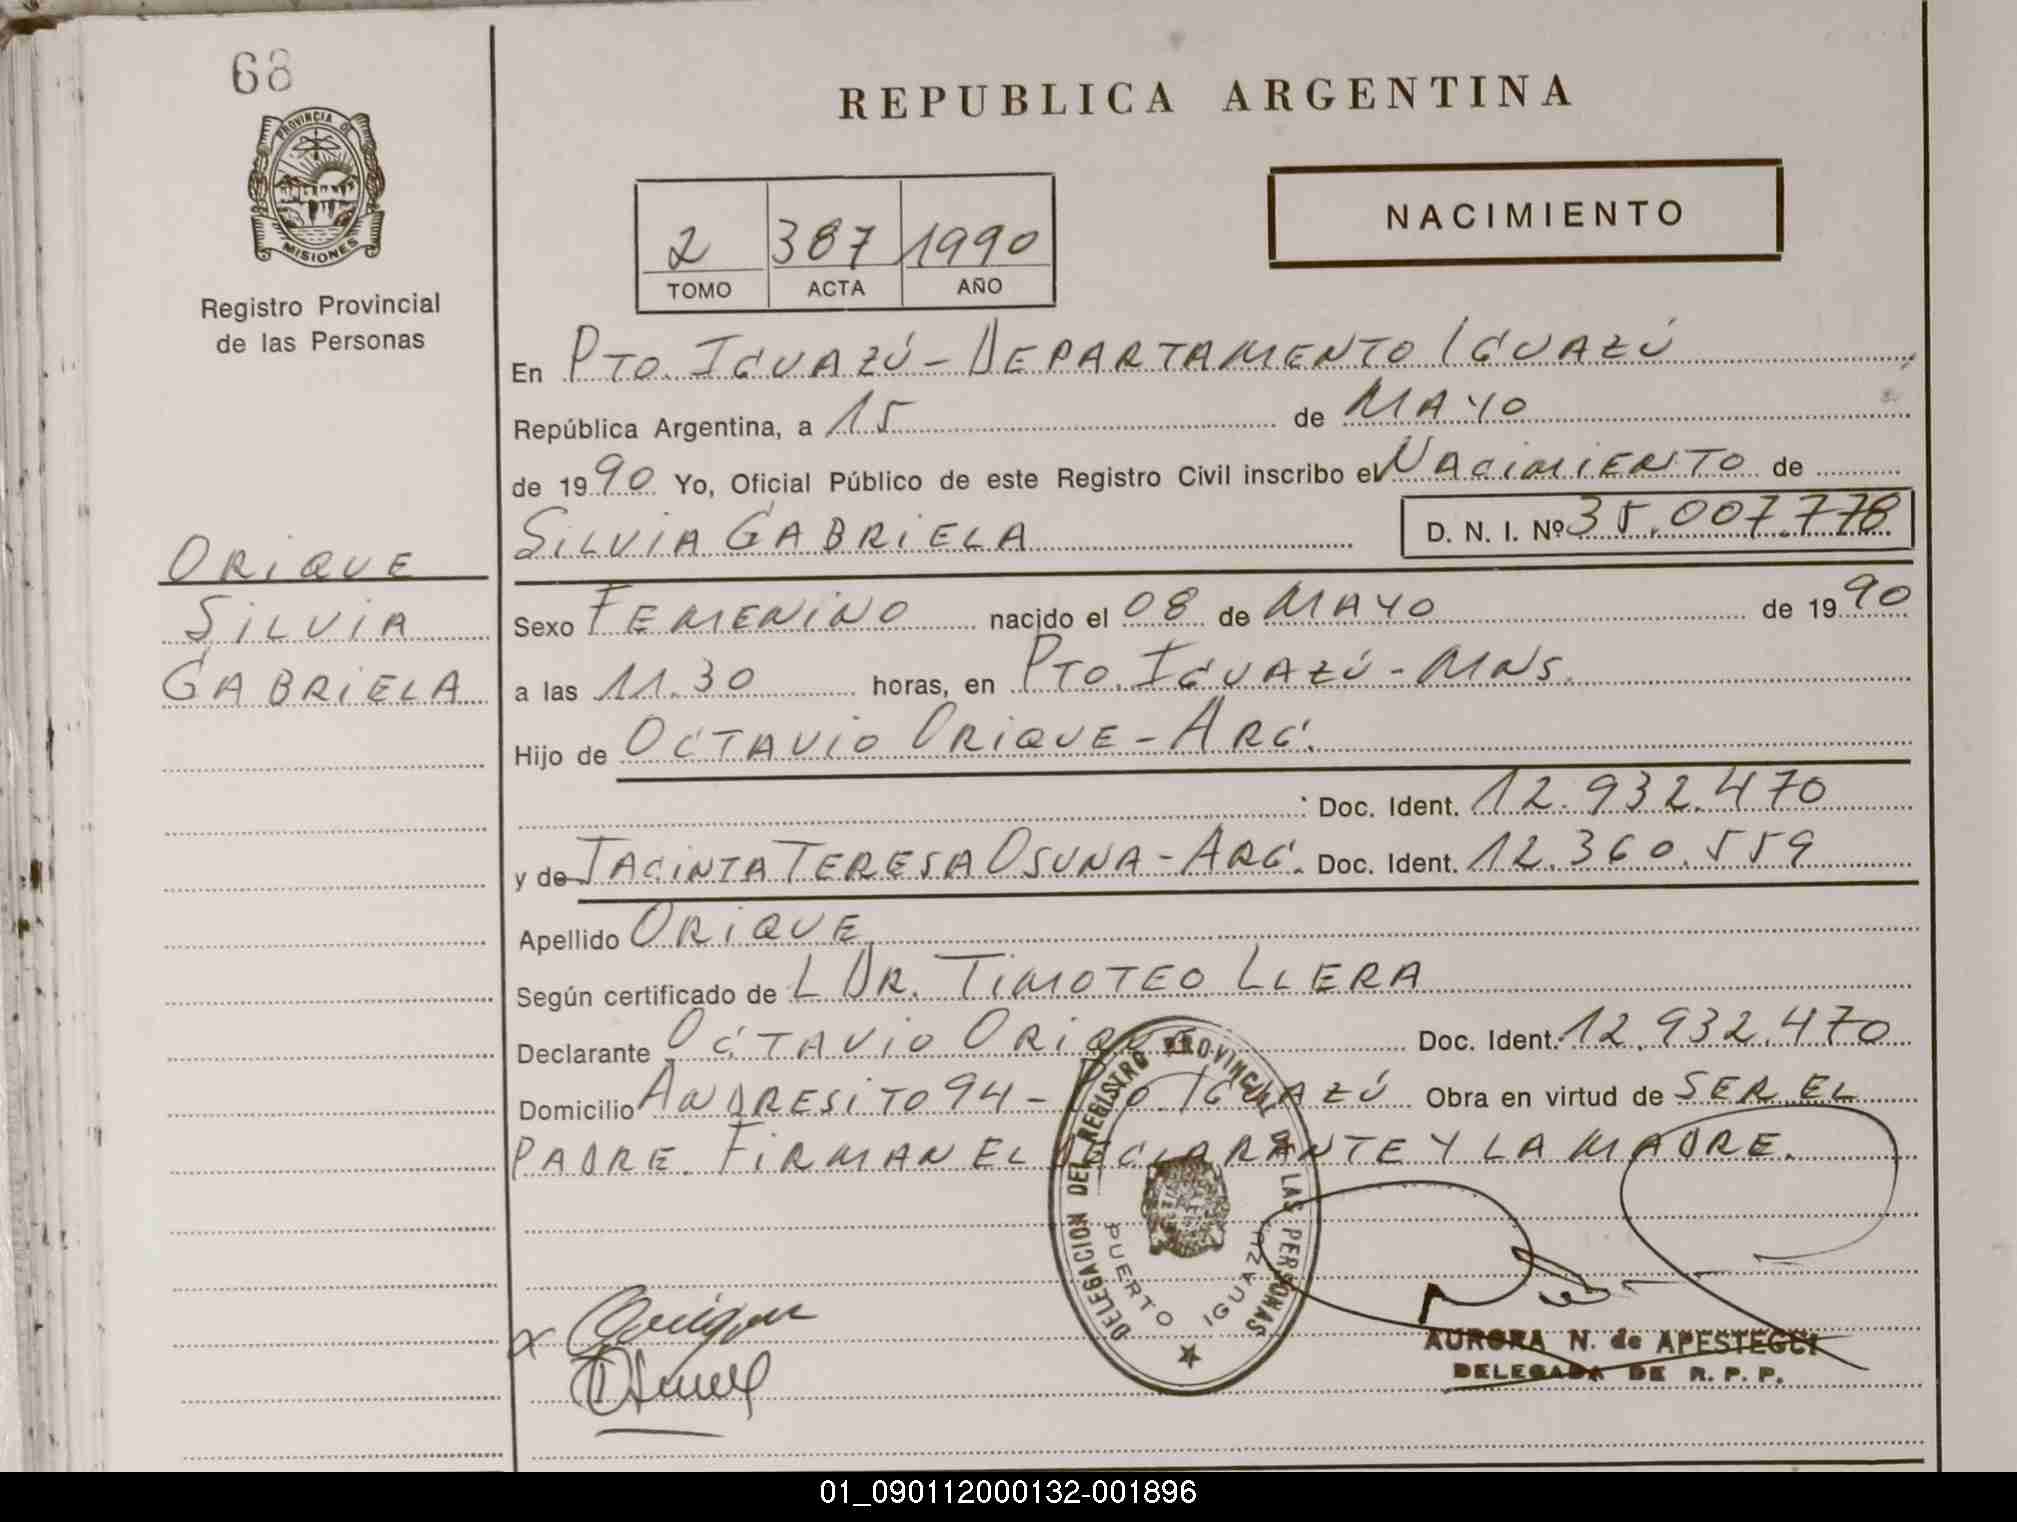 68
PROVINCIA DE
MISIONES
Registro Provincial
de las Personas
REPUBLICA ARGENTINA
2 387 1990
TOMO ACTA AÑO
NACIMIENTO
En PTO. IGUAZÚ - DEPARTAMENTO IGUAZÚ
República Argentina, a 15 de MAYO
de 1990 Yo, Oficial Público de este Registro Civil inscribo el NACIMIENTO de
SILVIA GABRIELA D. N. I. Nº 35.007.778
ORIQUE
SILVIA
GABRIELA
Sexo FEMENINO nacido el 08 de MAYO de 1990
a las 11.30 horas, en PTO. IGUAZÚ - MNS.
Hijo de OCTAVIO ORIQUE - ARG.
Doc. Ident. 12.932.470
y de JACINTA TERESA OSUNA - ARG. Doc. Ident. 12.360.559
Apellido ORIQUE
Según certificado de L DR. TIMOTEO LLERA
Declarante OCTAVIO ORIQUE Doc. Ident. 12.932.470
Domicilio ANDRESITO 94 - PTO. IGUAZÚ Obra en virtud de SER EL
PADRE. FIRMAN EL DECLARANTE Y LA MADRE.
DELEGACION DEL REGISTRO PROVINCIAL DE LAS PERSONAS
PUERTO IGUAZU
AURORA N. de APESTEGUI
DELEGADA DE R. P. P.
01_090112000132-001896